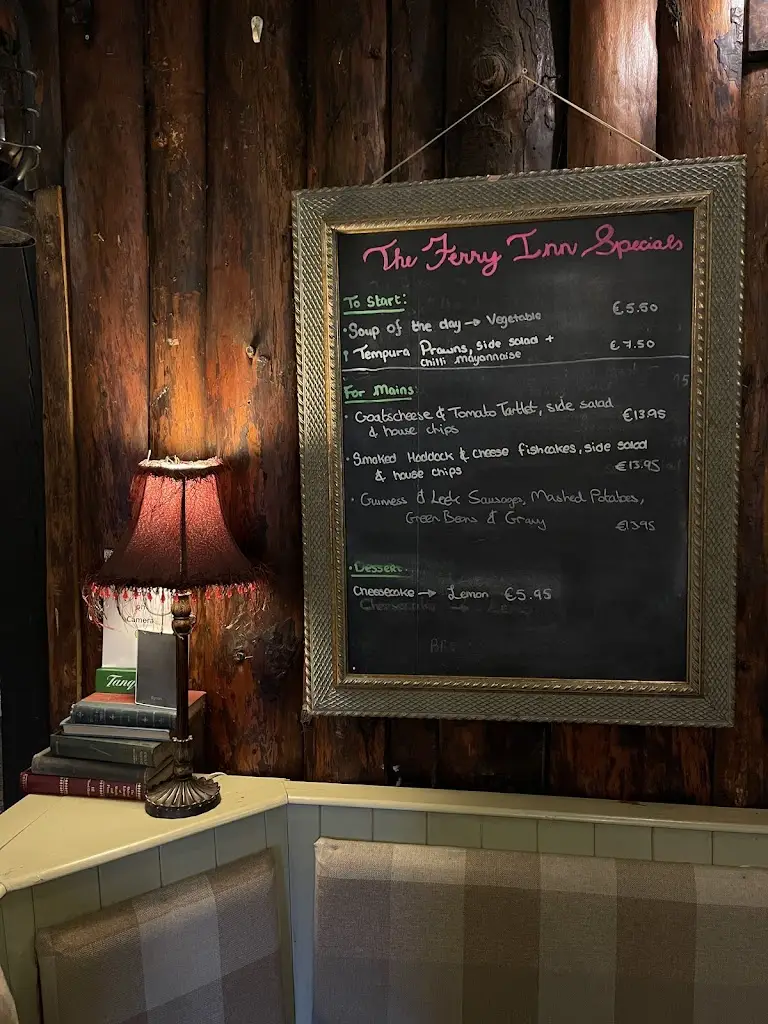 The Ferry Inn Specials
To Start:
• Soup of the day → Vegetable €5.50
• Tempura Prawns, side salad + €7.50
chilli mayonnaise
For Mains:
• Goatscheese & Tomato Tartlet, side salad
& house chips €13.95
• Smoked Haddock & cheese fishcakes, side salad
& house chips €13.95
• Guinness & Leek Sausages, Mashed Potatoes,
Green Beans & Gravy €13.95
• Dessert:
Cheesecake → Lemon €5.95
Cheesecake →
on
Camera
Tang